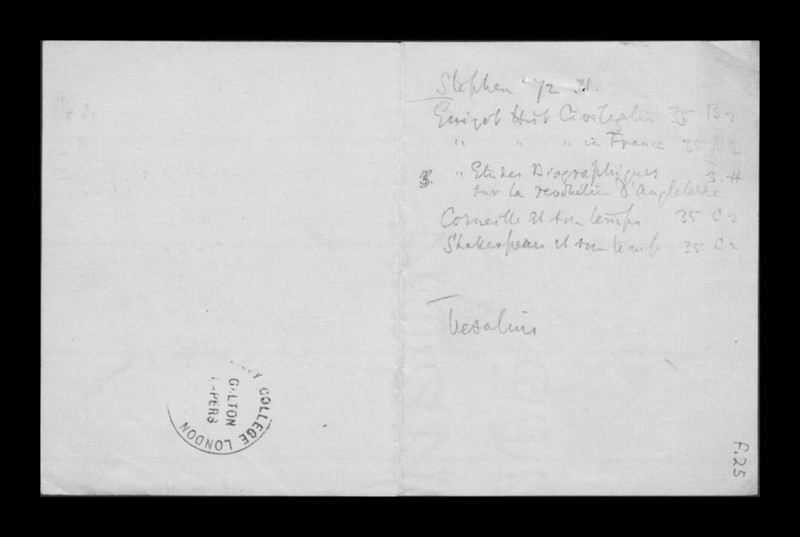 Stephen
Guizot Hist Civilization 35 B 2
" " " in France 35 B 2
3. " Etudes Biographiques 3. H
sur la revolution d'Angleterre
Corneille et son temps 35 C 2
Shakespeare et son temps 35 C 2
Vesalius
COLLEGE LONDON
GALTON
PAPERS
F.25